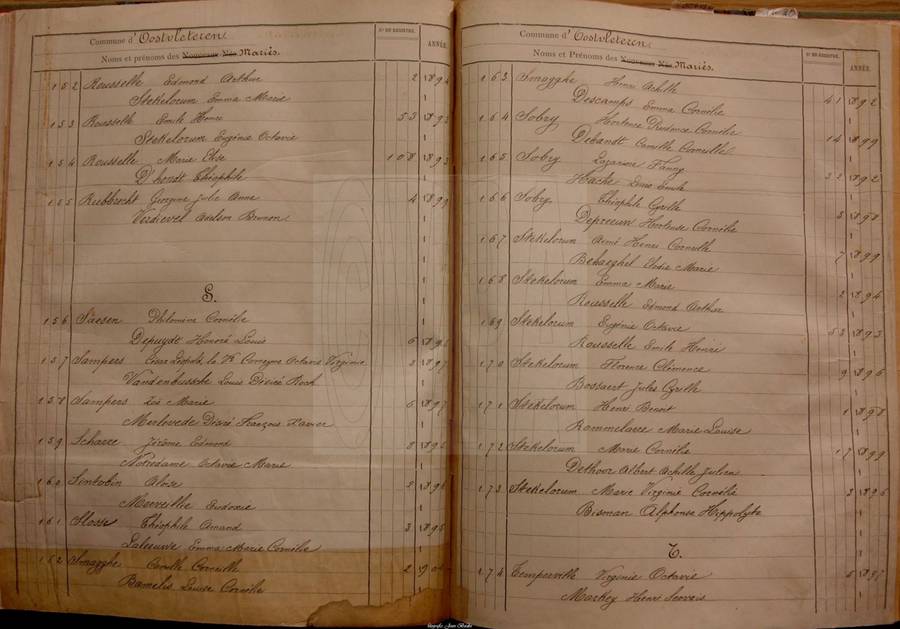 Commune d' Oostvleteren
Nos DU REGISTRE. ANNÉE.
Noms et prénoms des Nouveaux Nés Mariés.
152 Rousselle Edmond Arthur 2 1894
Stekelorum Emma Marie
153 Rousselle Emile Henri 53 1893
Stekelorum Eugénie Octavie
154 Rousselle Marie Elise 108 1893
D'hondt Théophile
155 Rubbrecht Georgine Julie Anne 4 1899
Verhievel Bruson
S.
156 Saesen Philomène Cornélie
Depuydt Honoré Louis 6
157 Sampers Octavie Virginie 2 1897
Vandenbussche Louis Désiré Roch
158 Sampers Zoé Marie 6 1897
Merlevede Désiré François Xavier
159 Scharre Jérôme Edmond 8
Notredame Octavie Marie
160 Sintobin Aloïse 2 1896
Merveillie Eudoxie
161 Slosse Théophile Amand 3
Emma Marie Cornélie
162 Smagghe Camille Corneille 2
Bamelis Louise Cornélie
Commune d' Oostvleteren
Nos DU REGISTRE. ANNÉE.
Noms et Prénoms des Nouveaux Nés Mariés.
163 Smagghe Henri Achille 41 1892
Descamps Emma Cornélie
164 Sobry Hortense Prudence Cornélie 14 1899
Debandt Camille Corneille
165 Sobry Lazarine Fanny 32 1892
Hacke Emile
166 Sobry Théophile Cyrille 3 1898
Depreeuw Hortense Cornélie
167 Stekelorum Aimé Henri Corneille 7 1899
Behaeghel Elodie Marie
168 Stekelorum Emma Marie 2 1894
Rousselle Edmond Arthur
169 Stekelorum Eugénie Octavie 53 1893
Rousselle Emile Henri
170 Stekelorum Florence Clémence 9 1896
Bossaert Jules Cyrille
171 Stekelorum Henri Benoit 1 1898
Rommelaere Marie Louise
172 Stekelorum Marie Cornélie 17 1899
Dethoor Albert Achille Julien
173 Stekelorum Marie Virginie Cornélie 3 1896
Bisman Alphonse Hippolyte
T.
174 Temperville Virginie Octavie 5 1897
Markey Henri